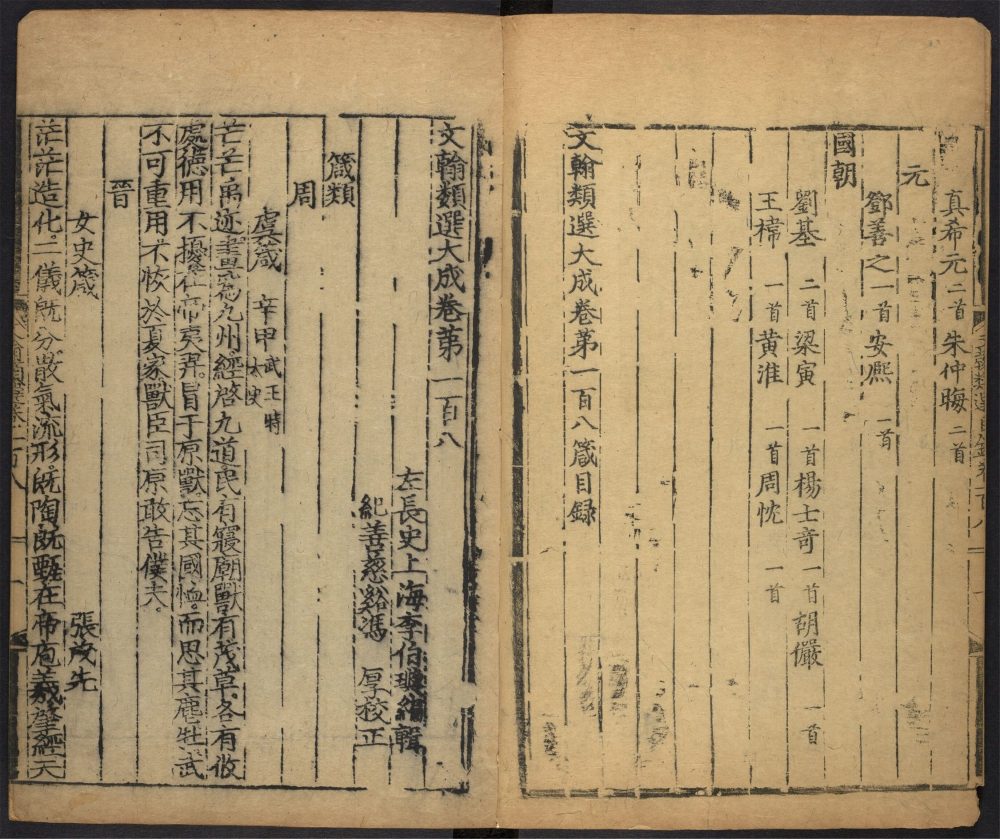 真希元 二首 朱仲晦 二首
元
鄧善之 一首 安熈 一首
國朝
劉基 二首 梁寅 一首 楊士竒 一首 胡儼 一首
王禕 一首 黄淮 一首 周忱 一首
文翰類選大成卷第一百八箴目録
文翰類選大成卷第一百八
左長史上海李伯璵編輯
紀善慈谿馮 厚校正
箴類
周
虞箴 辛甲 武王時太史
芒芒禹迹畫為九州經啓九道民有寢廟獸有茂草各有攸
處德用不擾在帝夷羿冒于原獸忘其國恤而思其麀牡武
不可重用不恢於夏家獸臣司原敢告僕夫
晉
女史箴 張茂先
茫茫造化二儀旣分散氣流形旣陶旣甄在帝庖羲肇經天